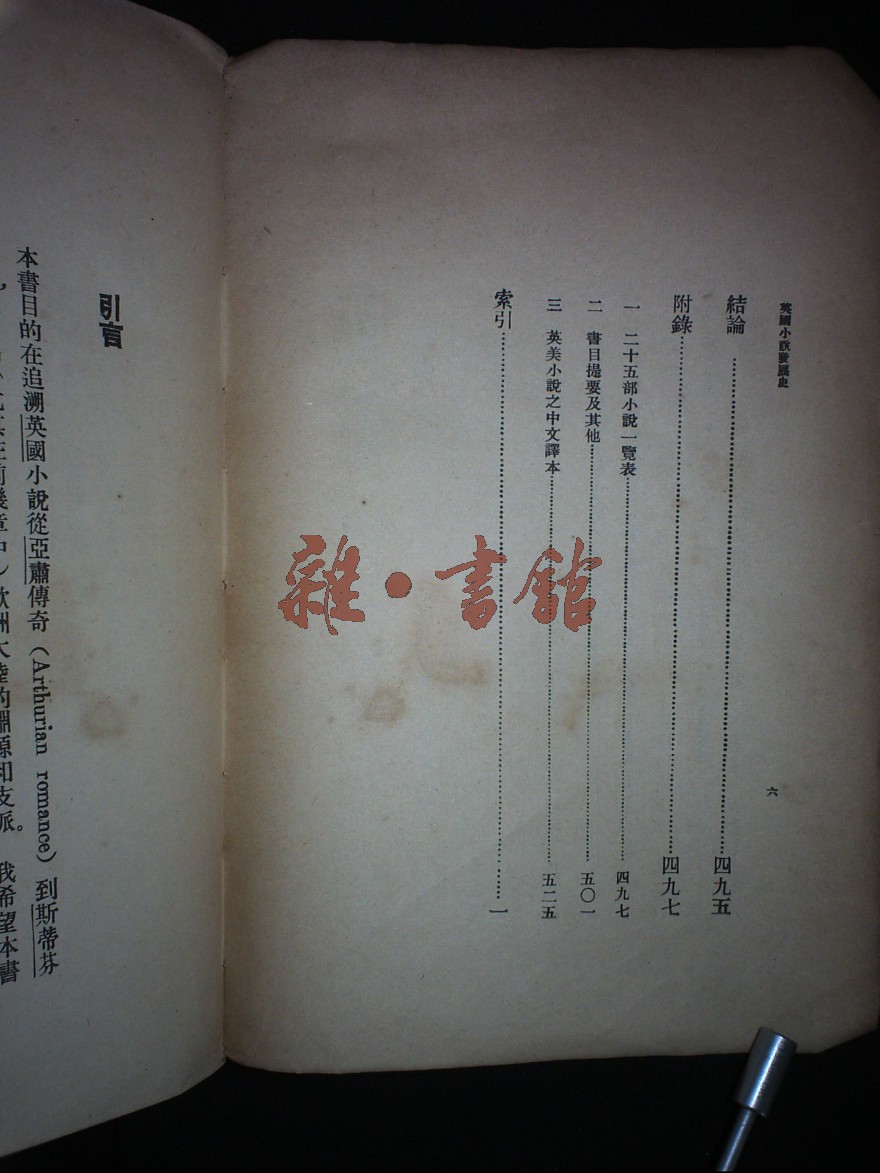 英國小說發展史
六
結論……四九五
附錄……四九七
一 二十五部小說一覽表……四九七
二 書目提要及其他……五〇一
三 英美小說之中文譯本……五二五
索引……一
雜·書館
引言
本書目的在追溯英國小說從亞肅傳奇(Arthurian romance)到斯蒂芬
歐洲大陸的淵源和支派。我希望本書